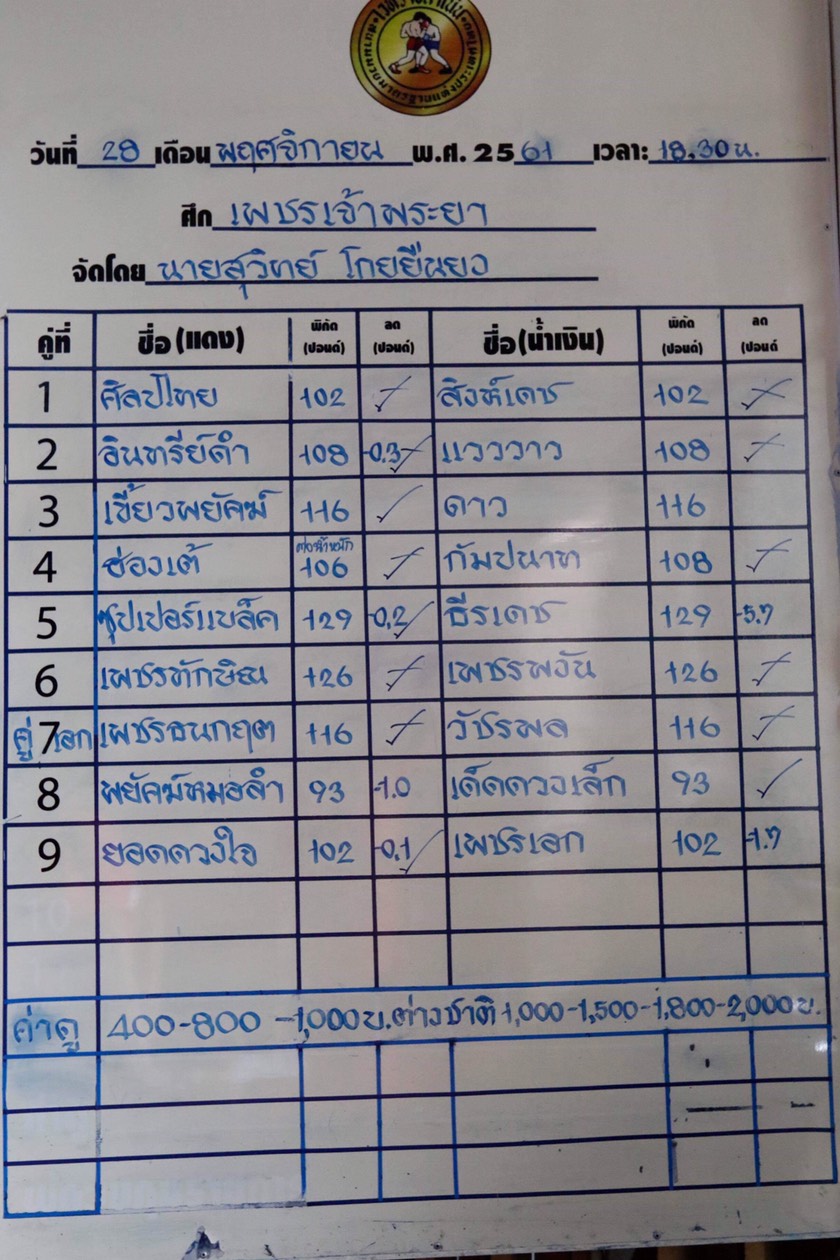 เวทีราชดำเนิน
วันที่ 28 เดือน พฤศจิกายน พ.ศ. 2561 เวลา: 18.30 น.
ศึก เพชรเจ้าพระยา
จัดโดย นายสุวิทย์ โกยยืนยง
คู่ที่ ชื่อ (แดง) พิกัด (ปอนด์) ลด (ปอนด์) ชื่อ (น้ำเงิน) พิกัด (ปอนด์) ลด (ปอนด์
1 ศิลป์ไทย 102 สิงห์เดช 102
2 อินทรีย์ดำ 108 -0.3 แวววาว 108
3 เขี้ยวพยัคฆ์ 116 ดาว 116
4 ฮ่องเต้ ต่อน้ำหนัก 106 กัมปนาท 108
5 ซุปเปอร์แบล็ค 129 -0.2 ธีรเดช 129 -5.7
6 เพชรทักษิณ 126 เพชรพงัน 126
คู่ 7 เอก เพชรธนกฤต 116 วัชรพล 116
8 พยัคฆ์หมอลำ 93 -1.0 เด็ดดวงเล็ก 93
9 ยอดดวงใจ 102 -0.1 เพชรเอก 102 -1.7
ค่าดู 400-800 -1,000 บ. ต่างชาติ 1,000-1,500-1,800-2,000 บ.